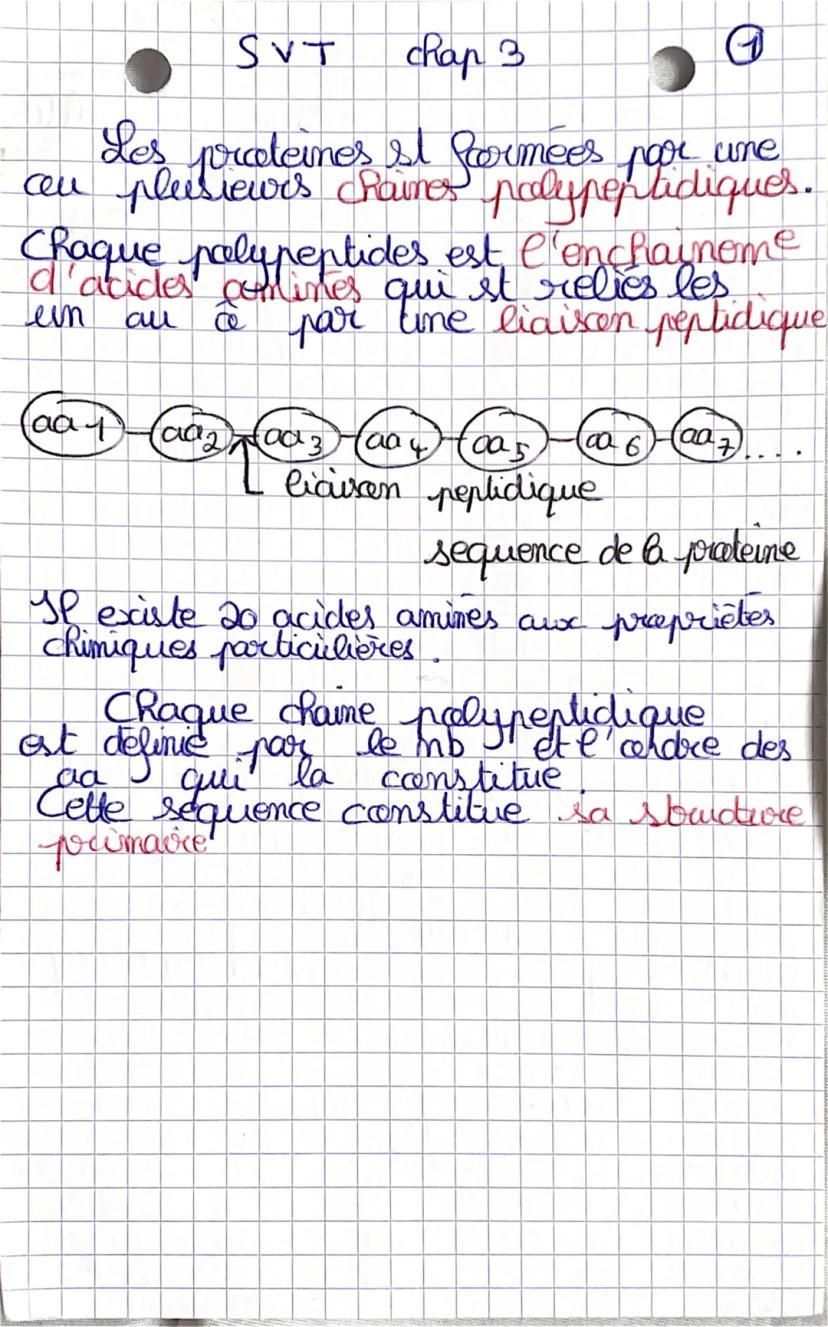 SVT chap 3 ①
Les proteines st formées par une
ou plusieurs chaines polypeptidiques.
Chaque polypeptides est l'enchaineme
d'acides aminés qui st reliés les
un au ē par une liaison peptidique
aa1 aa2 aa3 aa4 aa5 aa6 aa7....
liaison peptidique
sequence de la proteine
Il existe 20 acides aminés aux propriétés
chimiques particulières.
Chaque chaine polypeptidique
est définie par le nb et l'ordre des
aa qui la constitue.
Cette séquence constitue sa structure
primaire